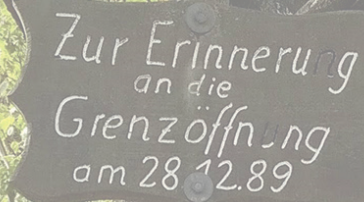 Zur Erinnerung
an die
Grenzöffnung
am 28.12.89